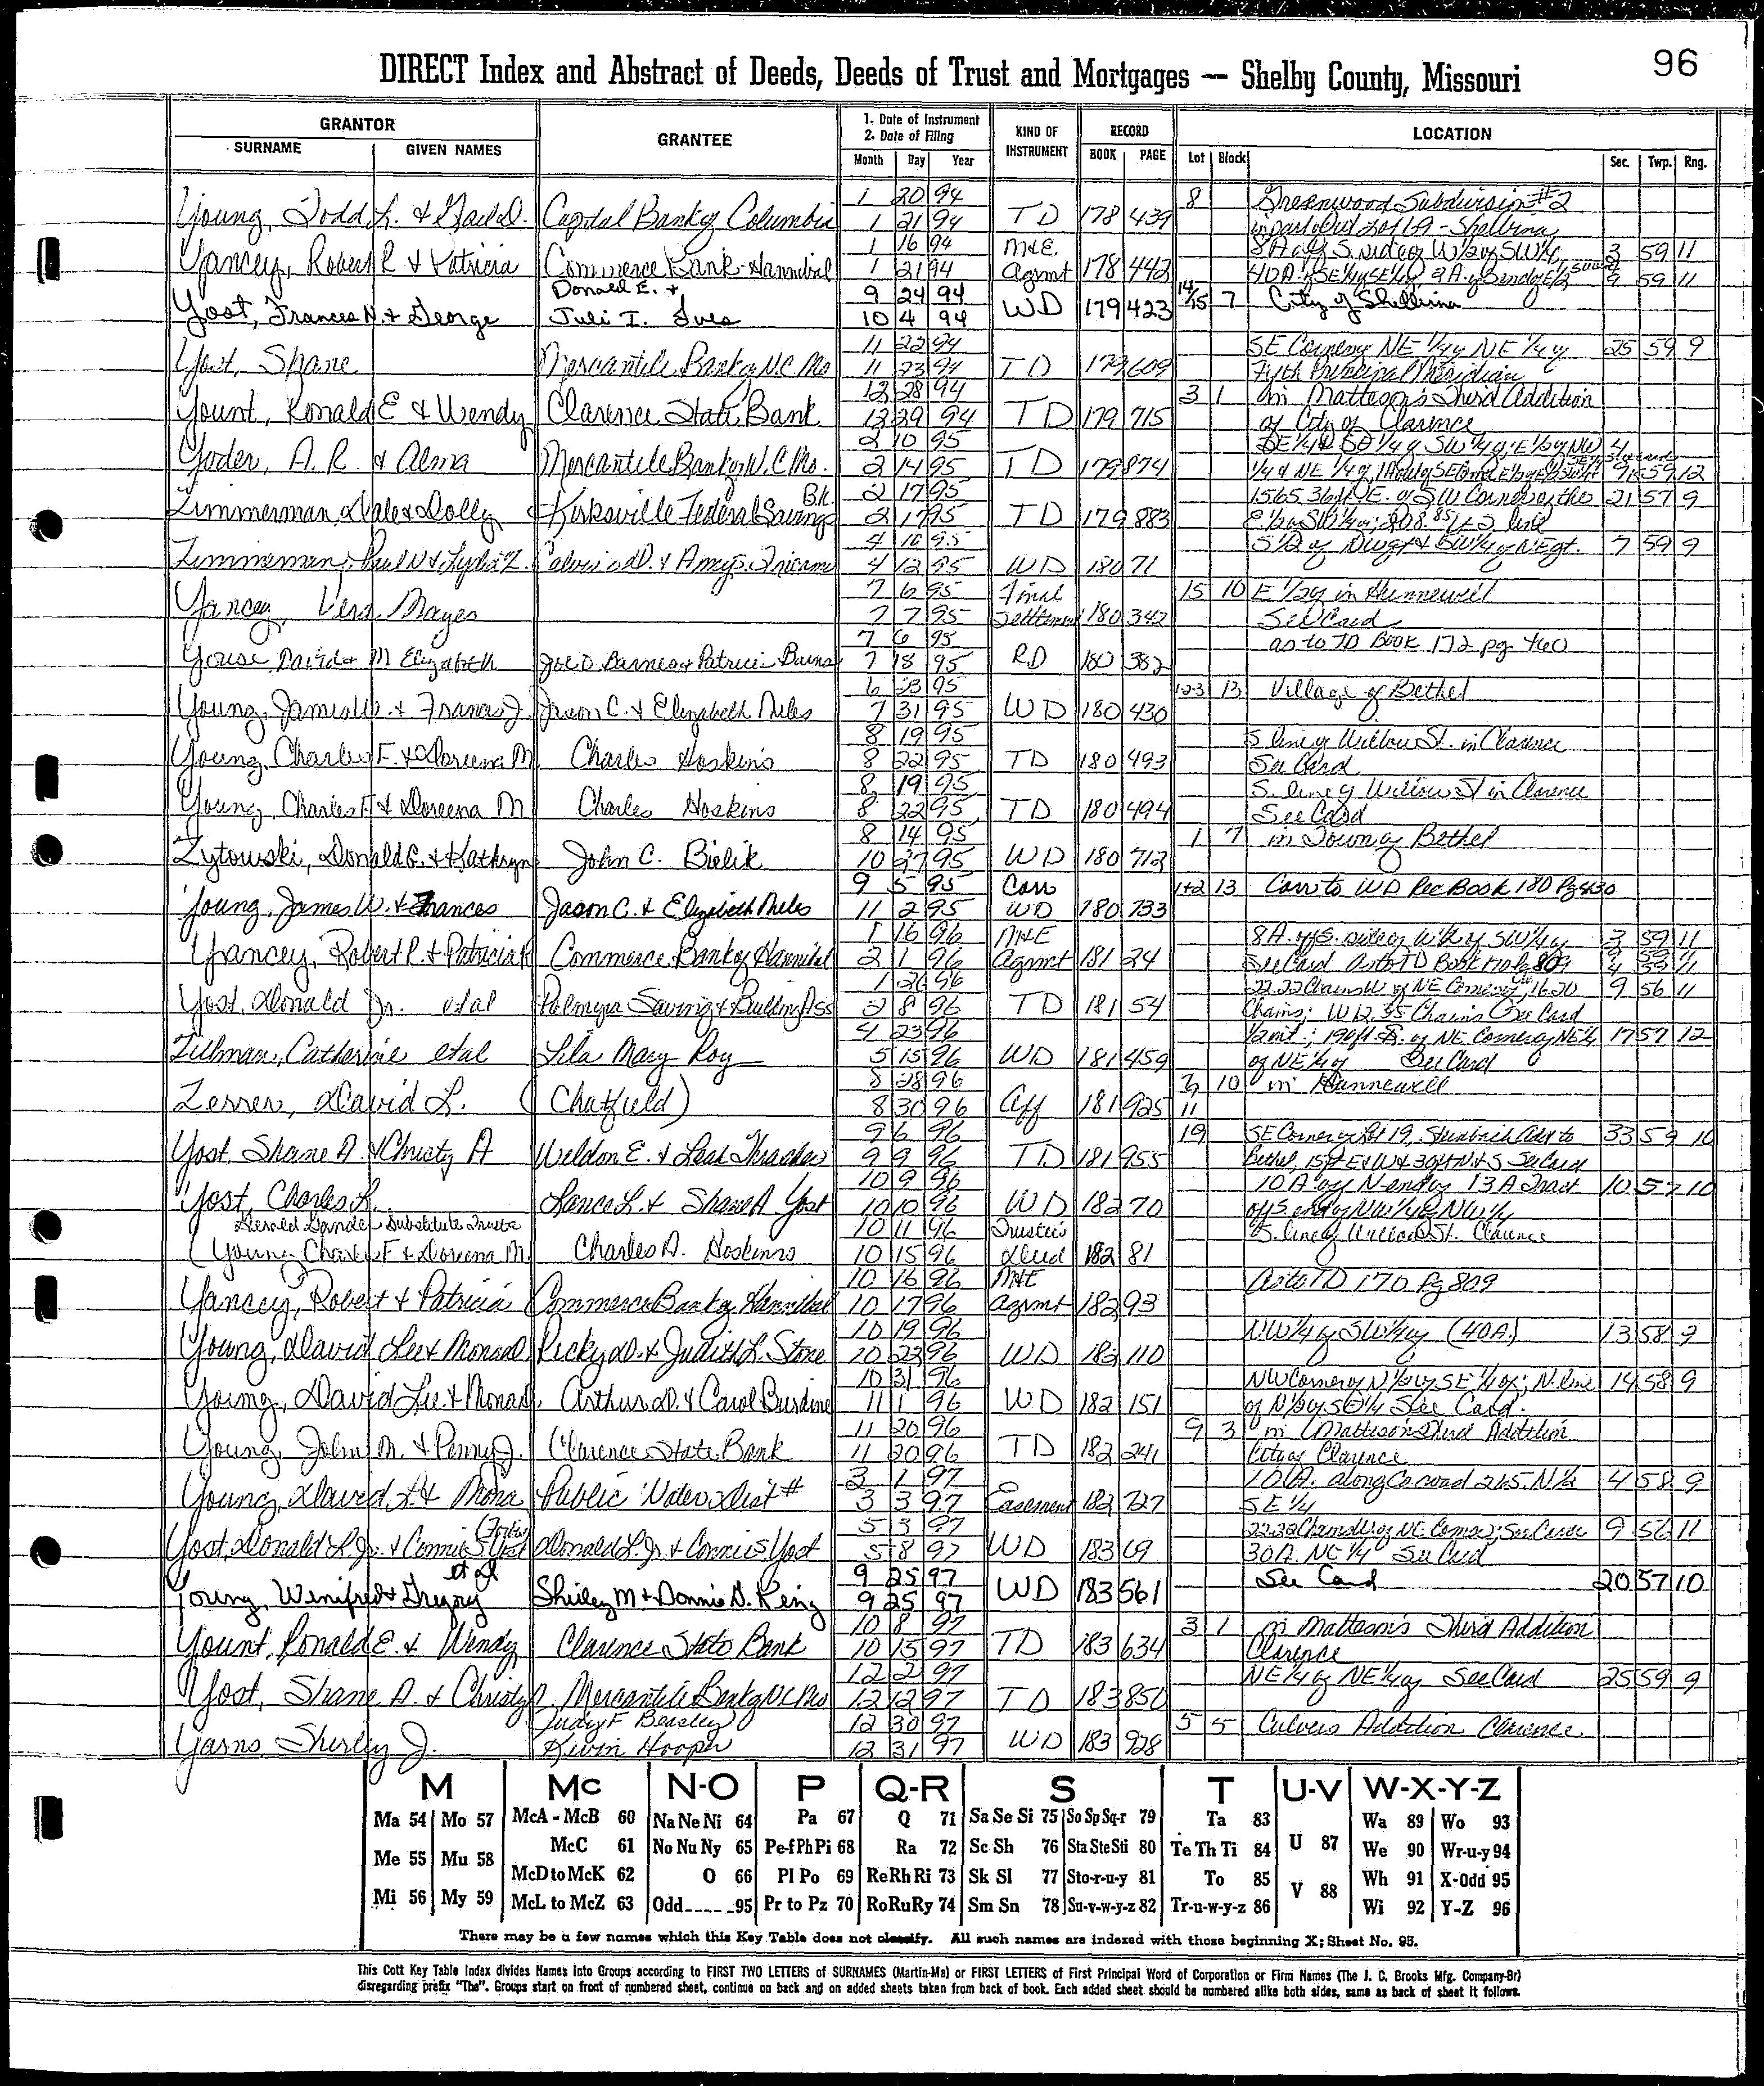 96
DIRECT Index and Abstract of Deeds, Deeds of Trust and Mortgages — Shelby County, Missouri
GRANTOR
SURNAME GIVEN NAMES
GRANTEE
1. Date of Instrument
2. Date of Filing
Month Day Year
KIND OF INSTRUMENT
RECORD
BOOK PAGE
LOCATION
Lot Block Sec. Twp. Rng.
1 20 94 8 Greenwood Subdivision #2
Young, Todd L. & Gail D. Capital Bank of Columbia 1 21 94 TD 178 439 in part Out Lot 1A - Shelbina
1 16 94 M&E. 8A off S. side of W½ of SW¼ 3 59 11
Yancey, Robert R & Patricia Commerce Bank-Hannibal 1 21 94 Agmt 178 442 9 59 11
Donald E. & 9 24 94 14/15 7 City of Shelbina
Yost, Frances N. & George Juli I. Ives 10 4 94 WD 179 423
11 22 94 SE Corner of NE ¼ of NE ¼ of 25 59 9
Yost, Shane Mercantile Bank of N.C. Mo 11 23 94 TD 179 609 Fifth Principal Meridian
12 28 94 3 1 in Matteson's Third Addition
Yount, Ronald E & Wendy Clarence State Bank 12 29 94 TD 179 715 of City of Clarence
2 10 95 SE ¼ & SW ¼ of E ½ of NW 4
Yoder, A. R. & Alma Mercantile Bank of N.C. Mo. 2 14 95 TD 179 874 9 59 12
Bk. 2 17 95 21 57 9
Zimmerman, Dale & Dolly Kirksville Federal Savings 2 17 95 TD 179 883
4 10 95 S½ of NW qt & SW¼ of NE qt. 7 59 9
Zimmerman, Paul W & Lydia Z. Calvin D. & Amy S. 4 12 95 WD 180 71
7 6 95 Final 15 10 E ½ of in Hunnewell
Yancey, Vera Mayes 7 7 95 Settlement 180 342 See Card
7 6 95 as to TD Book 172 pg 460
Youse David & M Elizabeth Joe D Barnes & Patricia Barnes 7 18 95 RD 180 382
6 23 95 1-2-3 13 Village of Bethel
Young, James W. & Frances J. Jason C. & Elizabeth Miles 7 31 95 WD 180 430
8 19 95 S line of Willow St. in Clarence
Young, Charles F. & Doreena M Charles Hoskins 8 22 95 TD 180 493 See Card
8 19 95 S. line of Willow St in Clarence
Young, Charles F & Doreena M Charles Hoskins 8 22 95 TD 180 494 See Card
8 14 95 1 7 in Town of Bethel
Zytowski, Donald G. & Kathryn John C. Bielik 10 27 95 WD 180 712
9 5 95 Corr 1+2 13 Corr to WD Rec Book 180 Pg 430
Young, James W. & Frances Jason C. & Elizabeth Miles 11 2 95 WD 180 733
1 16 96 M&E 8A. off S. side of W½ of SW¼ of 3 59 11
Yancey, Robert R. & Patricia Commerce Bank of Hannibal 2 1 96 Agmt 181 24 See Card As to TD Book 170 Pg 809 4 59 11
1 26 96 22.22 Chains W of NE Corner 16.20 9 56 11
Yost, Donald Jr. etal Palmyra Saving & Building Ass 2 8 96 TD 181 54 Chains; W 12.35 Chains See Card
4 23 96 17 57 12
Zillman, Catherine etal Lila Mary Roy 5 15 96 WD 181 459 of NE¼ of See Card
8 28 96 10 in Hunnewell
Zerrer, David L. (Chatfield) 8 30 96 Aff 181 925 11
9 6 96 19 SE Corner of Lot 19, Steinbach Add to 33 59 10
Yost, Shane A. & Christy A Weldon E. & Leah Thrasher 9 9 96 TD 181 955 Bethel, 15ft E&W & 30ft N&S See Card
10 9 96 10 A of N end of 13 A Tract 10 57 10
Yost, Charles L. Lance L. & Shane A Yost 10 10 96 WD 182 70 off S. end of NW¼ of NW¼
Substitute Trustee 10 11 96 Trustee's S. line of Willow St. Clarence
(Young, Charles F & Doreena M. Charles A. Hoskins 10 15 96 Deed 182 81
10 16 96 M&E As to TD 170 Pg 809
Yancey, Robert & Patricia Commerce Bank of Hannibal 10 17 96 Agrmt 182 93
10 19 96 NW¼ of SW¼ of (40A.) 13 58 9
Young, David Lee & Mona D Ricky D. & Judith L. Stone 10 22 96 WD 182 110
10 31 96 NW Corner of N½ of SE¼ of; N. line 14 58 9
Young, David Lee & Mona D. Arthur D. & Carol Burdine 11 1 96 WD 182 151 of N½ of SE¼ See Card.
11 20 96 9 3 in Matteson's Third Addition
Young, John M. & Penny J. Clarence State Bank 11 20 96 TD 182 241 City of Clarence
3 1 97 10 A. along Co road 265. N½ 4 58 9
Young, David L & Mona Public Water Dist # 3 3 97 Easement 182 727 SE¼
5 3 97 22.22 Chains W of NE Corner; See Card 9 56 11
Yost, Donald L Jr. & Connie S Yost Donald L. Jr. & Connie S Yost 5 8 97 WD 183 69 30A. NE¼ See Card
etal 9 25 97 See Card 20 57 10
Young, Winifred & Gregory Shirley M & Donnie D. King 9 25 97 WD 183 561
10 8 97 3 1 in Matteson's Third Addition
Yount, Ronald E. & Wendy Clarence State Bank 10 15 97 TD 183 634 Clarence
12 2 97 NE¼ of NE¼ of See Card 25 59 9
Yost, Shane A. & Christy A. Mercantile Bank of N.C. Mo 12 12 97 TD 183 850
Judy F Beasley 12 30 97 5 5 Culvers Addition Clarence
Garns, Shirley J. Kevin Hooper 12 31 97 WD 183 928
M Mc N-O P Q-R S T U-V W-X-Y-Z
Ma 54 Mo 57 McA - McB 60 Na Ne Ni 64 Pa 67 Q 71 Sa Se Si 75 So Sp Sq-r 79 Ta 83 U 87 Wa 89 Wo 93
Me 55 Mu 58 McC 61 No Nu Ny 65 Pe-f Ph Pi 68 Ra 72 Sc Sh 76 Sta Ste Sti 80 Te Th Ti 84 We 90 Wr-u-y 94
McD to McK 62 O 66 Pl Po 69 Re Rh Ri 73 Sk Sl 77 Sto-r-u-y 81 To 85 V 88 Wh 91 X-Odd 95
Mi 56 My 59 McL to McZ 63 Odd----95 Pr to Pz 70 Ro Ru Ry 74 Sm Sn 78 Su-v-w-y-z 82 Tr-u-w-y-z 86 Wi 92 Y-Z 96
There may be a few names which this Key Table does not classify. All such names are indexed with those beginning X; Sheet No. 95.
This Cott Key Table Index divides Names into Groups according to FIRST TWO LETTERS of SURNAMES (Martin-Ma) or FIRST LETTERS of First Principal Word of Corporation or Firm Names (The J. C. Brooks Mfg. Company-Br)
disregarding prefix "The". Groups start on front of numbered sheet, continue on back and on added sheets taken from back of book. Each added sheet should be numbered alike both sides, same as back of sheet it follows.